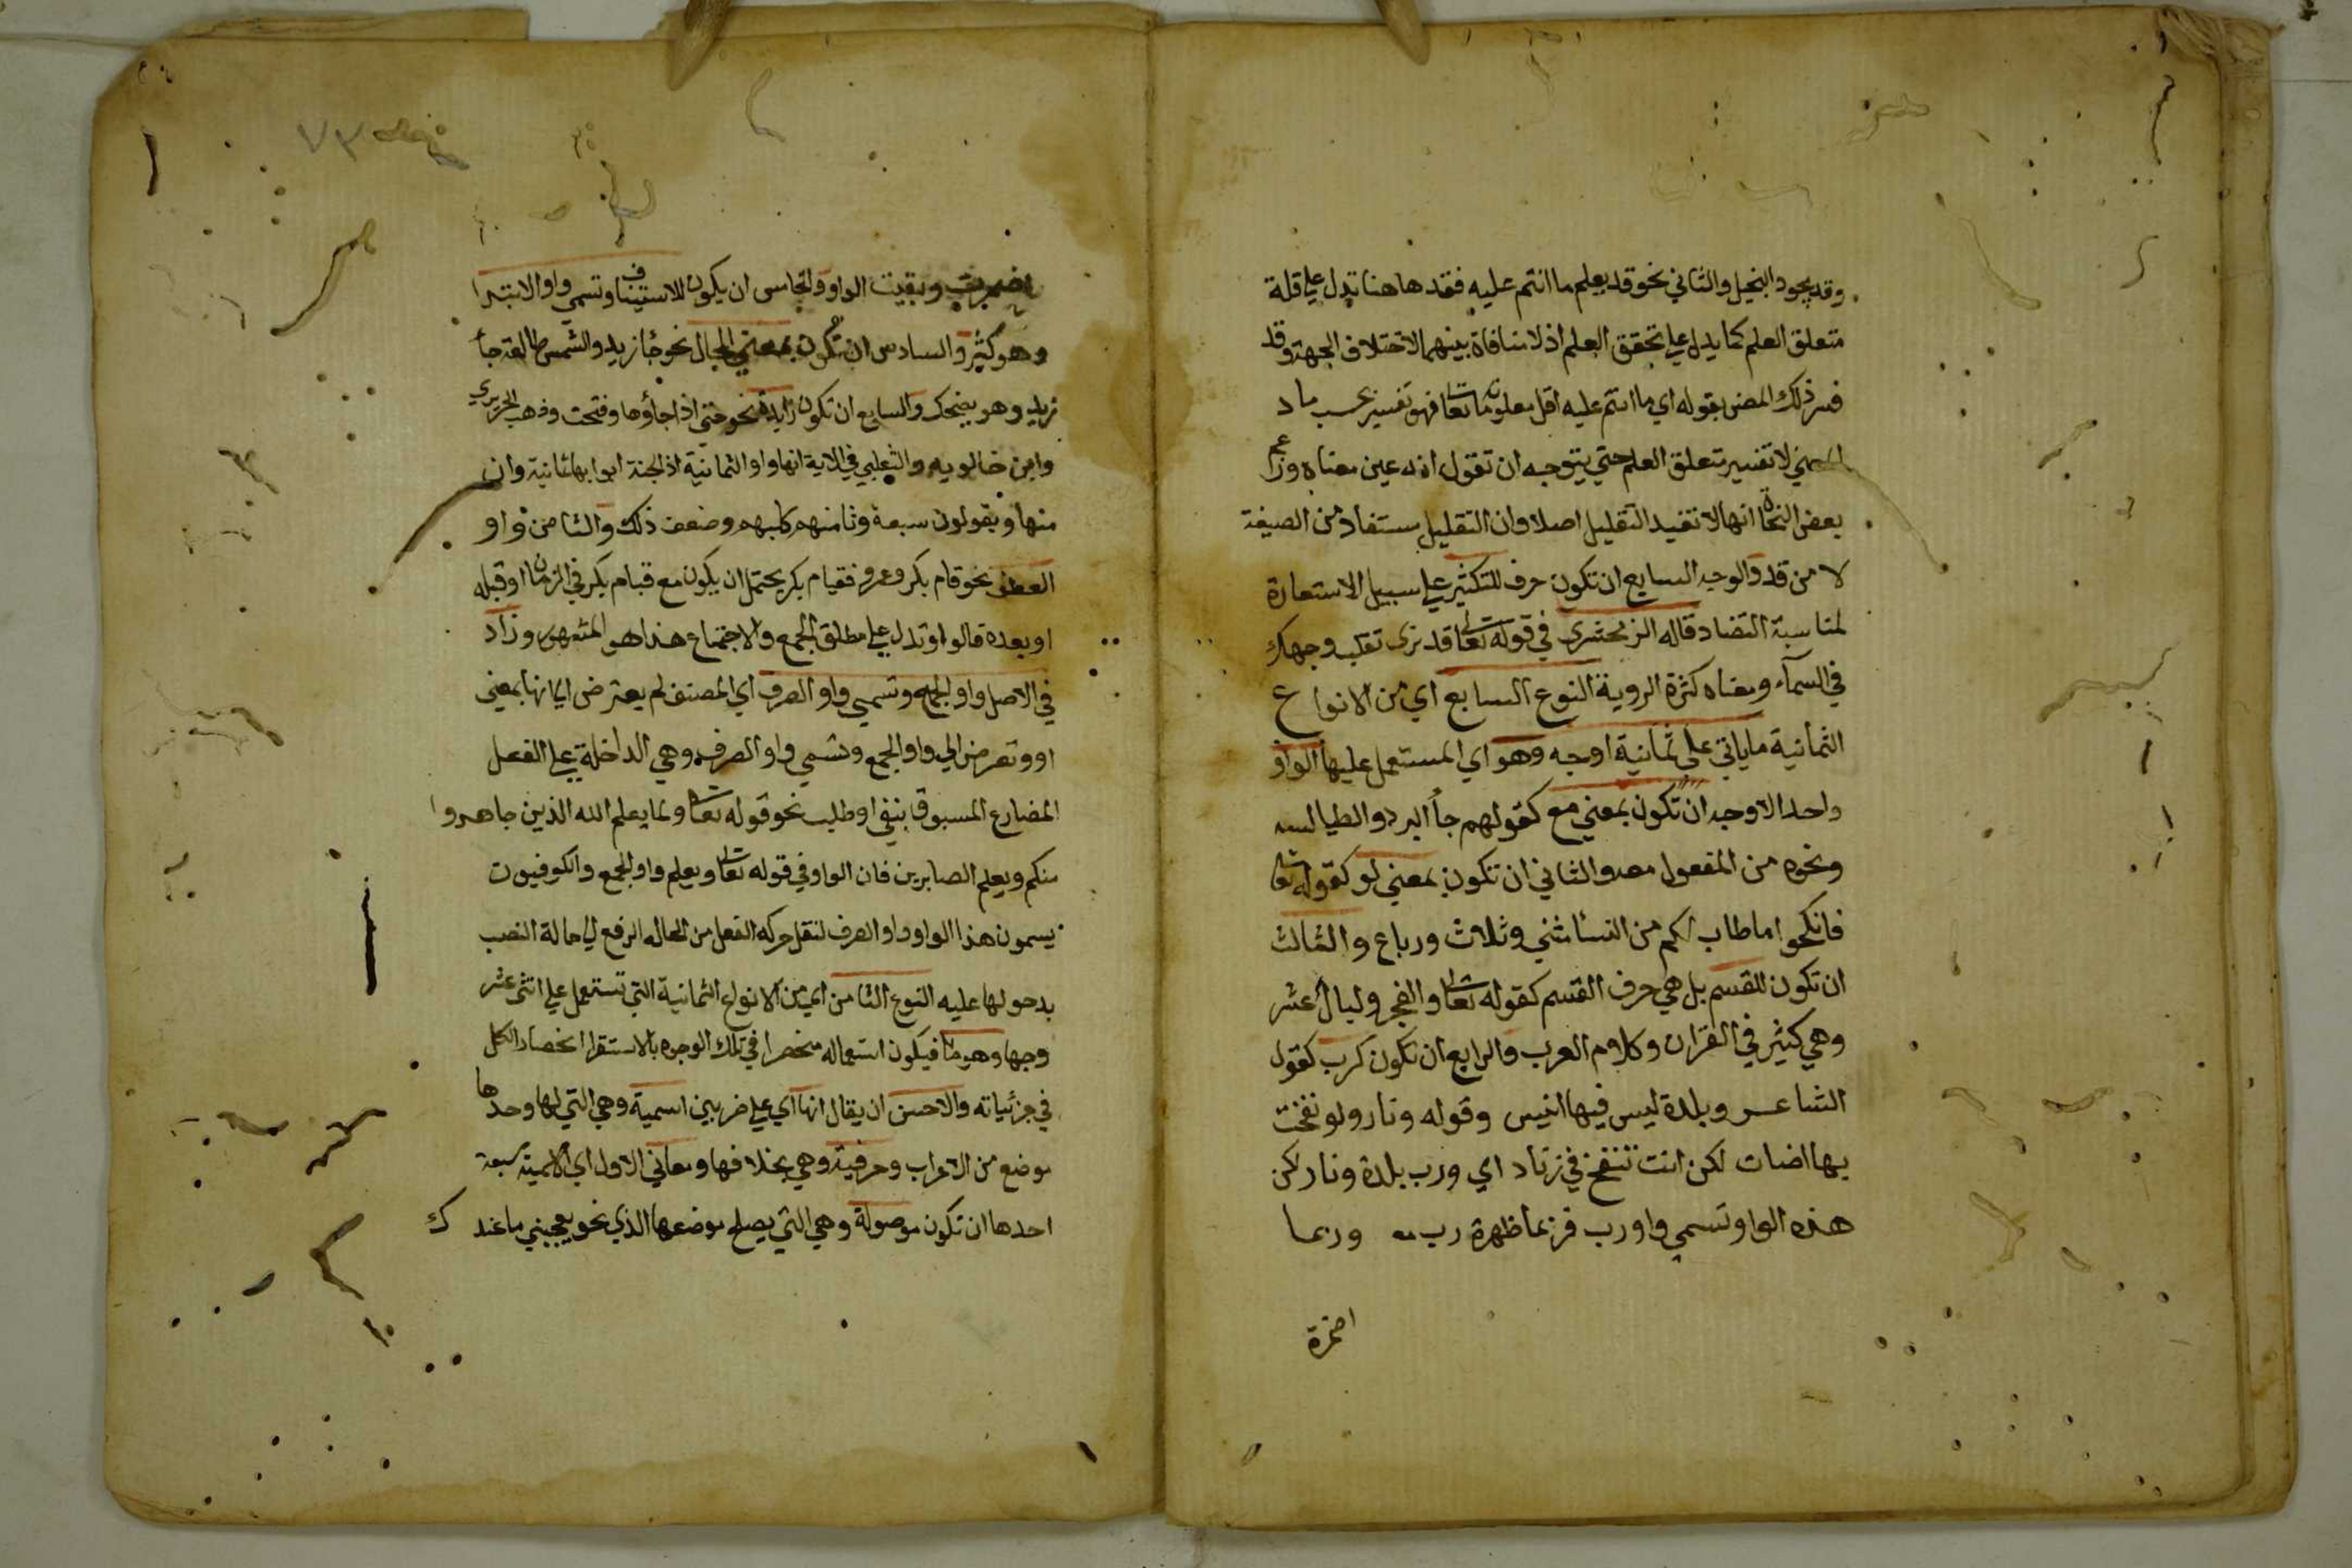 وقد يجود البخيل والثاني نحو قد يعلم ما انتم عليه فقد ها هنا تدل علي قلة
متعلق العلم كما يدل علي تحقق العلم اذ لا منافاة بينهما لاختلاف الجهة وقد
فسر ذلك المص بقوله اي ما انتم عليه اقل معلوماته تعا فهو تفسير بحسب ماد
المعني لا تفسير متعلق العلم حتي يتوجه ان تقول انه عين معناه وزعم
بعض النحاة انها لا تفيد التقليل اصلا وان التقليل مستفاد من الصيغة
لا من قد والوجه السابع ان تكون حرف للتكثير علي سبيل الاستعارة
لمناسبة التضاد قاله الزمخشري في قوله تعالى قد نرى تقلب وجهك
في السمآء ومعناه كثرة الروية النوع السابع اي من الانواع
الثمانية ما ياتي على ثمانية اوجه وهو اي المستعمل عليها الواو
واحد الاوجه ان تكون بمعني مع كقولهم جأ البرد والطيالسه
ونحوه من المفعول معه والثاني ان تكون بمعني لو كقوله تعالى
فانكحوا ما طاب لكم من النسا مثني وثلاث ورباع والثالث
ان تكون للقسم بل هي حرف القسم كقوله تعالى والفجر وليال عشر
وهي كثير في القران وكلام العرب والرابع ان تكون كرب كقول
الشاعر وبلدة ليس فيها انيس وقوله ونار ولو نفخت
بها اضات لكن انت تنفخ في زناد اي ورب بلدة ونار لكن
هذه الواو تسمي واو رب فربما ظهرة رب وربما
اضمرة
نضه ٧٣
اضمرت وبقيت الواو والخامس ان يكون للاستيناف وتسمي واو الابتدا
وهو كثير والسادس ان تكون بمعني الحال نحو جأ زيد والشمس طالعة جأ
زيد وهو يضحك والسابع ان تكون زايدة نحو حتي اذا جاؤها وفتحت وذهب الحريري
وابن خالويه والثعلبي في الاية انها واو الثمانية اذ الجنة ابوابها ثمانية وان
منها ويقولون سبعة وثامنهم كلبهم وضعف ذلك والثامن واو
العطف نحو قام بكر وعمرو فقيام بكر يحتمل ان يكون مع قيام بكر في الزمان او قبله
او بعده قالواو تدل علي مطلق الجمع والاجتماع هذا هو المشهور وزاد
في الاصل واو الجمع وتسمي واو الصرف اي المصنف لم يعترض انها بمعني
او وتعرض الي واو الجمع وتسمي واو الصرف وهي الداخلة علي الفعل
المضارع المسبوق بنفي او طلب نحو قوله تعا ولما يعلم الله الذين جاهدوا
منكم ويعلم الصابرين فان الواو في قوله تعالى ويعلم واو الجمع والكوفيون
يسمون هذا الواو واو الصرف لنقل حركه الفعل من الحاله الرفع الي حالة النصب
بدخولها عليه النوع الثامن اي من الانواع الثمانية التي تستعمل علي اثني عشر
وجها وهو ما فيكون استعماله منحصرا في تلك الوجوه بالاستقرا انحصار الكل
في جزئياته والاحسن ان يقال انها اي علي ضربين اسمية وهي التي لها وحدها
موضع من الاعراب وحرفية وهي بخلافها ومعاني الاول اي الاسمية سبعة
احدها ان تكون موصولة وهي التي يصلح موضعها الذي نحو يعجبني ما عندك